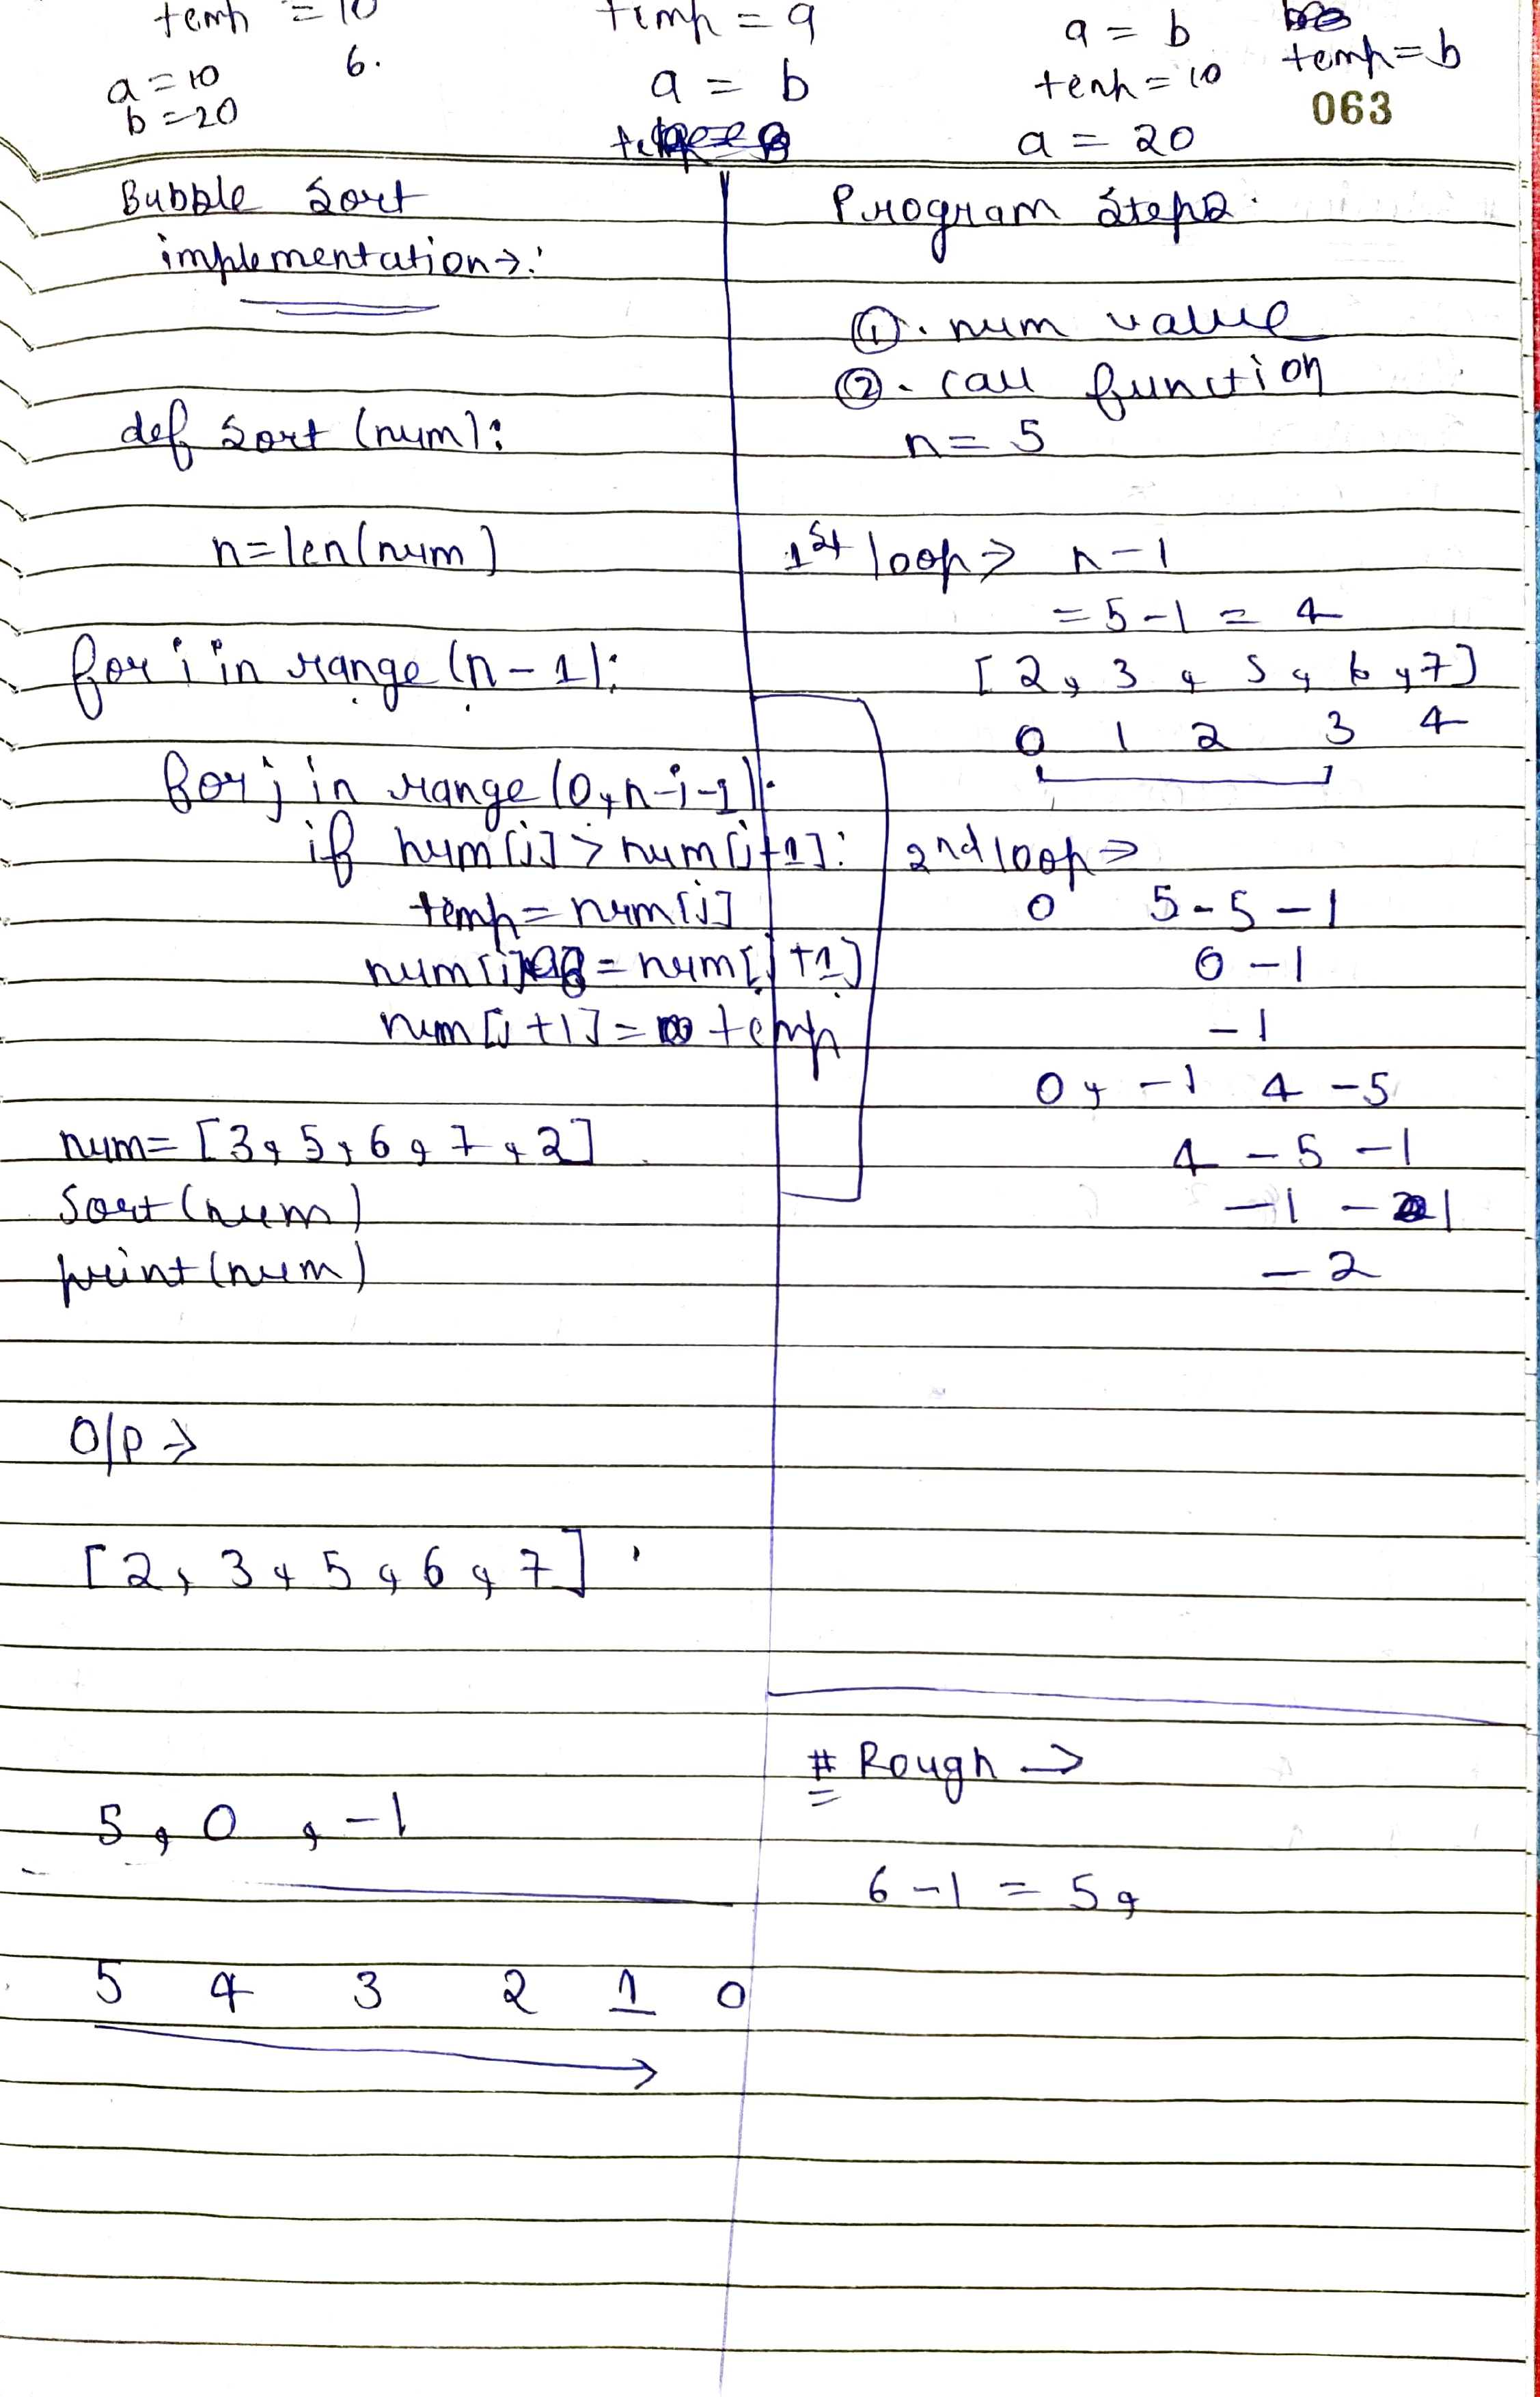 temp = 10
6.
a = 10
b = 20
temp = a
a = b
a = b
temp = 10
a = 20
temp = b
063
Bubble Sort
implementation →:
def Sort (num):
n = len(num)
for i in range (n - 1):
for j in range (0, n-i-1):
if num[j] > num[j+1]:
temp = num[j]
num[j] = num[j+1]
num[j+1] = temp
num = [3, 5, 6, 7, 2]
Sort (num)
print (num)
O/P →
[2, 3, 5, 6, 7]
5, 0, -1
5 4 3 2 1 0
Program Steps.
①. num value
②. call function
n = 5
1st loop → n - 1
= 5 - 1 = 4
[2, 3, 5, 6, 7]
0 1 2 3 4
2nd loop ⇒
0 5 - 5 - 1
0 - 1
- 1
0, -1 4 - 5
4 - 5 - 1
-1 - 1
- 2
# Rough →
6 - 1 = 5,